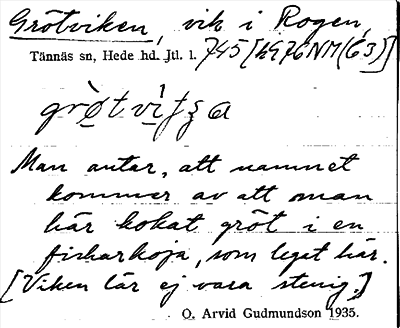 Grötviken, vik i Rogen,
Tännäs sn, Hede hd. Jtl. l. 745
Man antar, att namnet
kommer av att man
här kokat gröt i en
fiskarkoja, som legat här.
[Viken lär ej vara stenig.]
O. Arvid Gudmundson 1935.